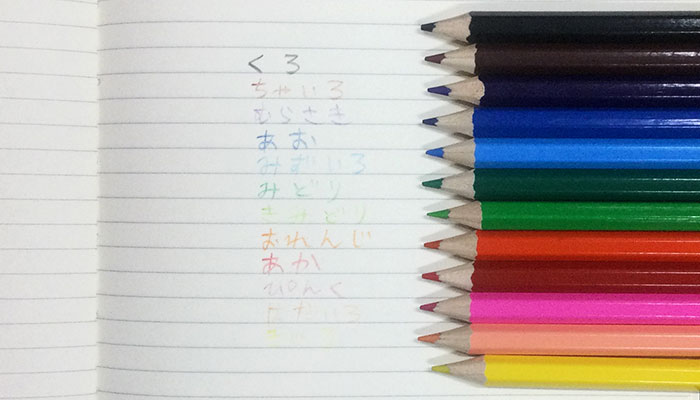 くろ
ちゃいろ
むらさき
あお
みずいろ
みどり
きみどり
おれんじ
あか
ぴんく
はだいろ
きいろ